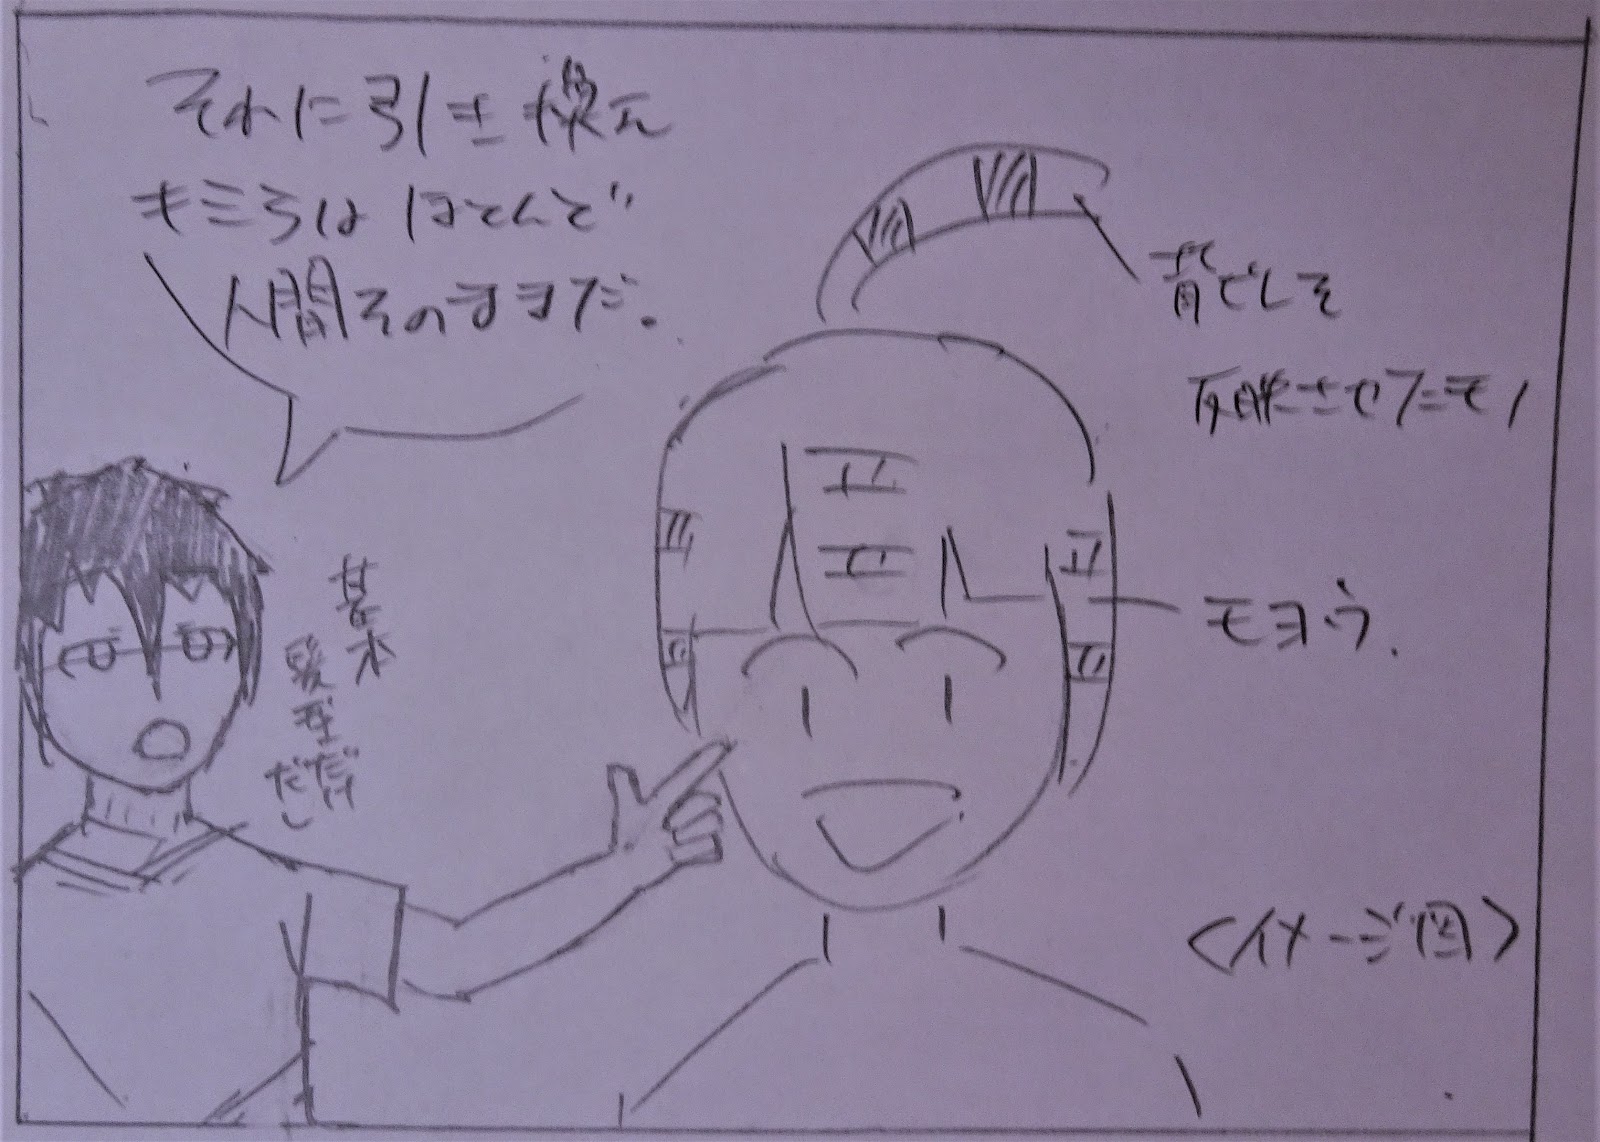 それに引き換え
キミらは ほとんど
人間そのママだ。
背びれを
反映させたモノ
モヨウ.
基本
髪型だけ
だし
<イメージ図>